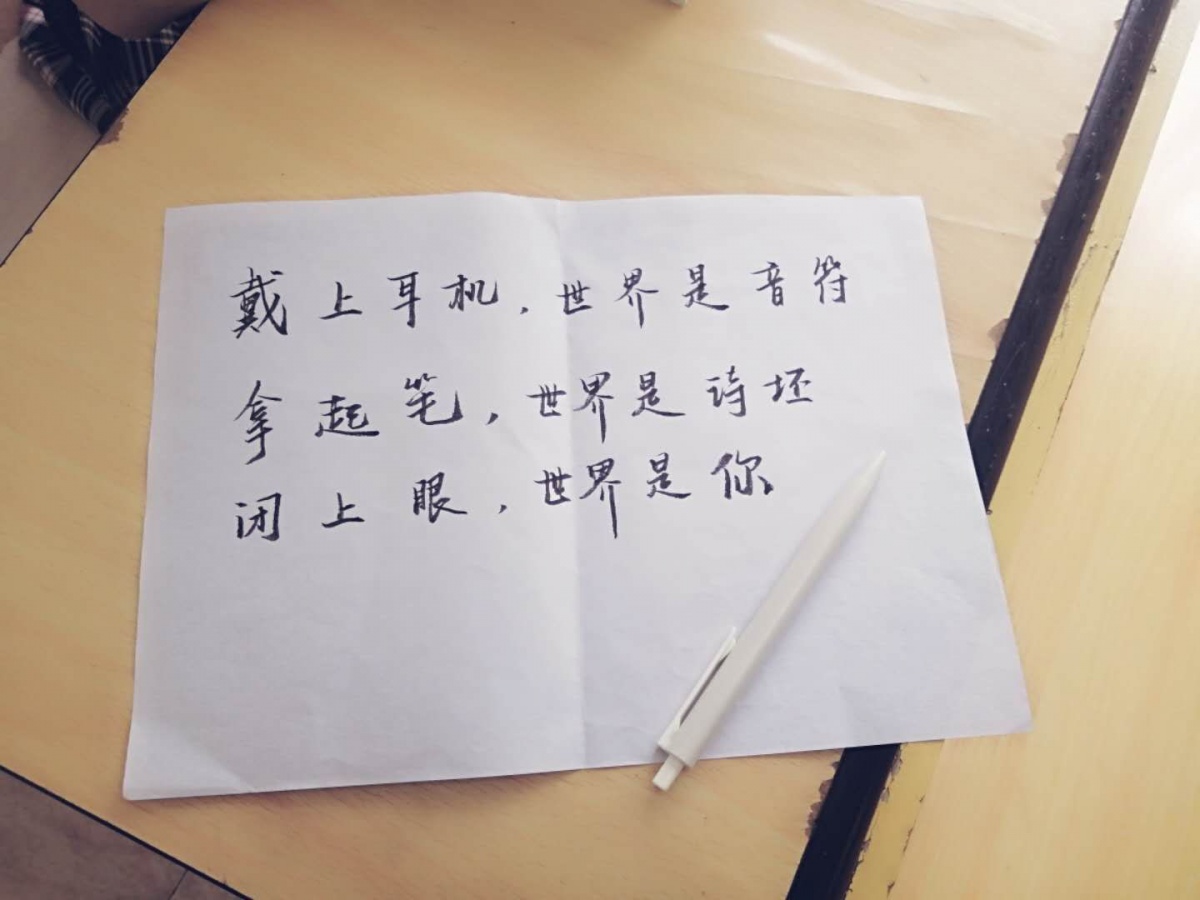 戴上耳机,世界是音符
拿起笔,世界是诗坯
闭上眼,世界是你